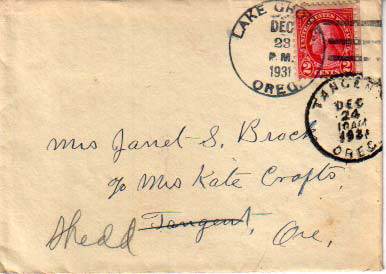 LAKE GRO
DEC
23
P.M.
1931
OREG.
UNITED STATES POSTAGE
2 CENTS 2
TANGENT
DEC
24
10AM
1931
OREG.
Mrs Janet S. Brock
c/o Mrs Kate Crafts,
Shedd Tangent, Ore,